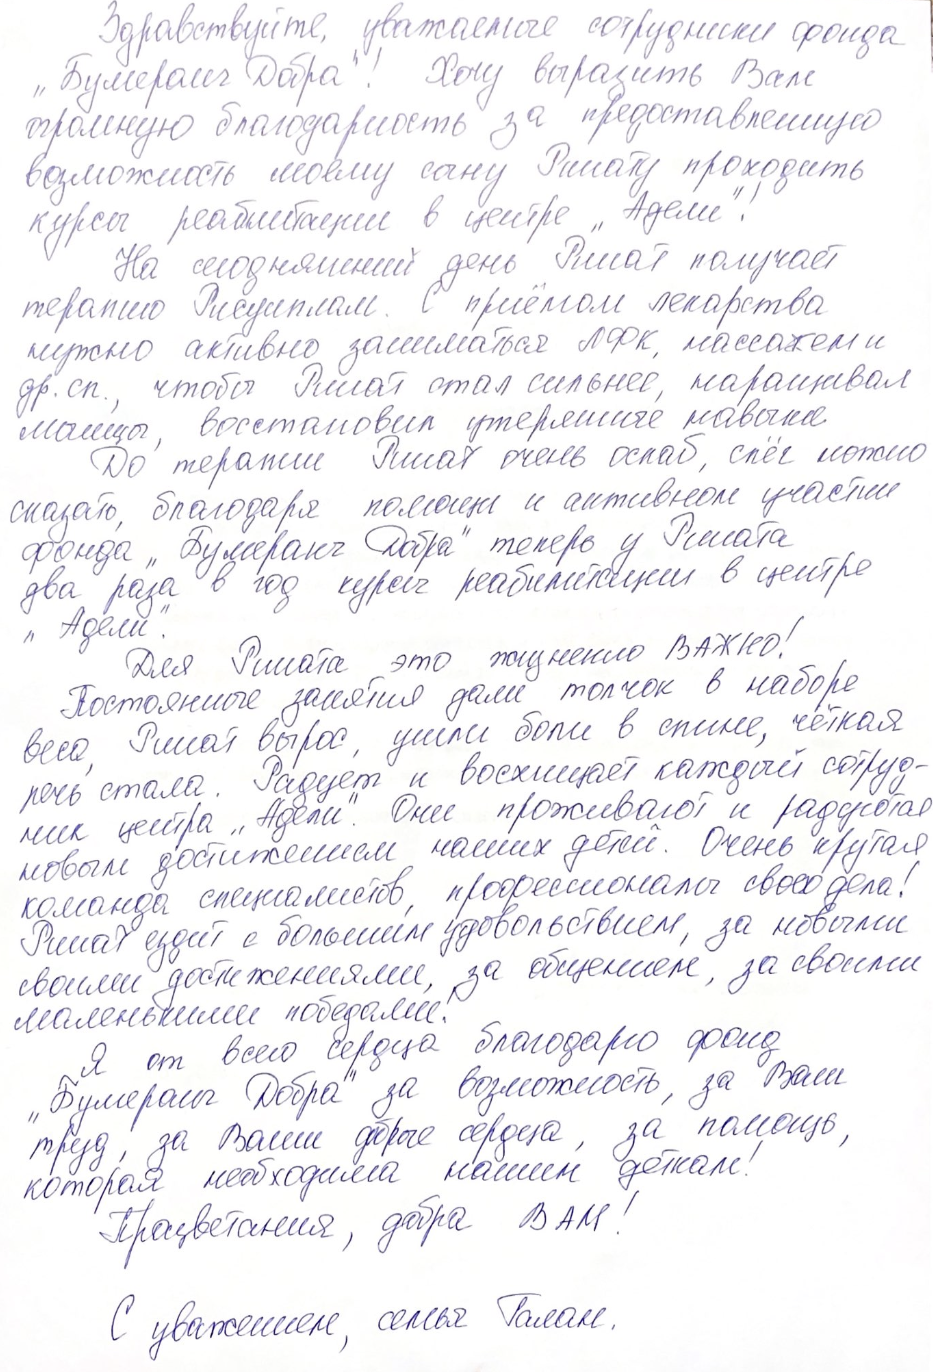 Здравствуйте, уважаемые сотрудники фонда
„Бумеранг Добра"! Хочу выразить Вам
огромную благодарность за предоставленную
возможность моему сыну Ринату проходить
курсы реабилитации в центре „Адели"!
На сегодняшний день Ринат получает
терапию Рисдиплам. С приёмом лекарства
нужно активно заниматься ЛФК, массажем и
др. сп., чтобы Ринат стал сильнее, наращивал
мышцы, восстановил утерянные навыки
До терапии Ринат очень ослаб, слёг можно
сказать, благодаря помощи и активном участии
фонда „Бумеранг Добра" теперь у Рината
два раза в год курсы реабилитации в центре
„Адели".
Для Рината это жизненно ВАЖНО!
Постоянные занятия дали толчок в наборе
веса, Ринат вырос, ушли боли в спине, чёткая
речь стала. Радует и восхищает каждый сотруд-
ник центра „Адели". Они проживают и радуются
новым достижением наших детей. Очень крутая
команда специалистов, профессионалы своего дела!
Ринат ездит с большим удовольствием, за новыми
своими достижениями, за общением, за своими
маленькими победами!
Я от всего сердца благодарю фонд
„Бумеранг Добра" за возможность, за Ваш
труд, за Ваши добрые сердца, за помощь,
которая необходима нашим деткам!
Процветания, добра ВАМ!
С уважением, семья Галан.